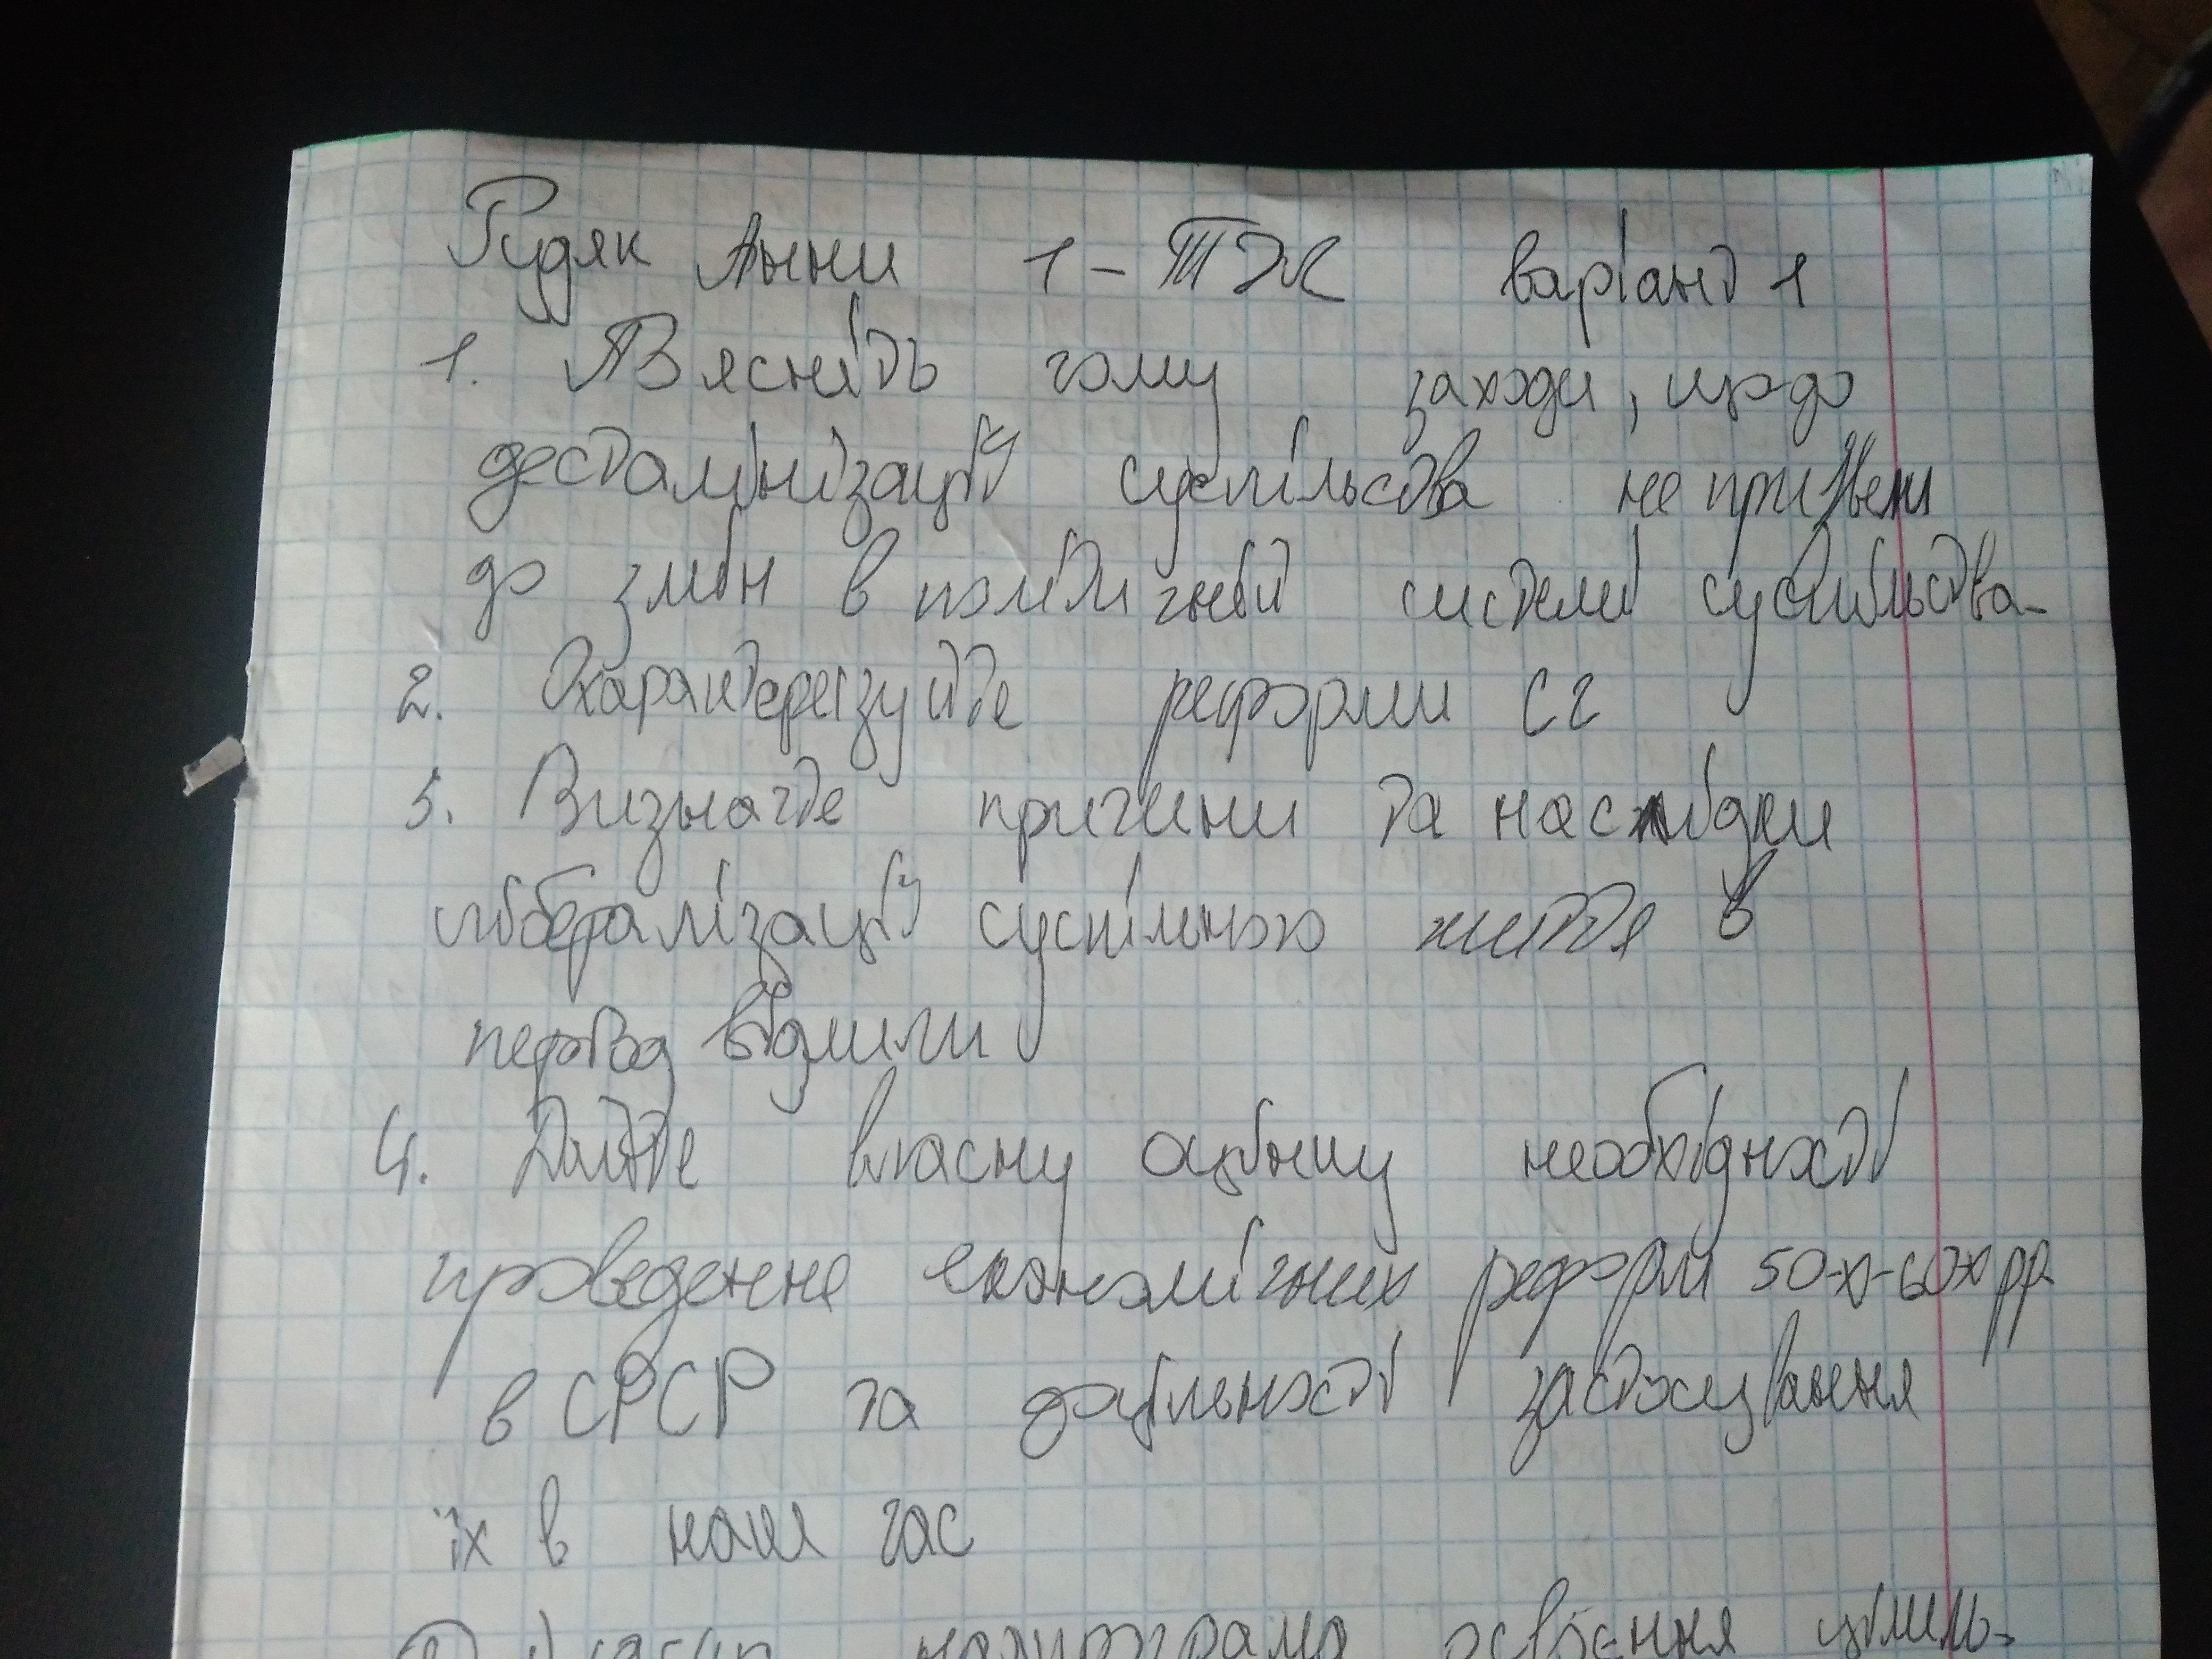 Рудяк Анни 1-ТЖ варіант 1
1. Яв ясніть чому заходи, щодо
десталінізації суспільства не призвели
до змін в політичній системі суспільства.
2. Охарактеризуйте реформи сг
3. Визначте причини та наслідки
лібералізації суспільного життя в
період відлиги
4. Дайте власну оцінку необхідності
проведення економічних реформ 50-х-60-х рр
в СРСР та доцільності застосування
їх в наш час
освоєння цілин-